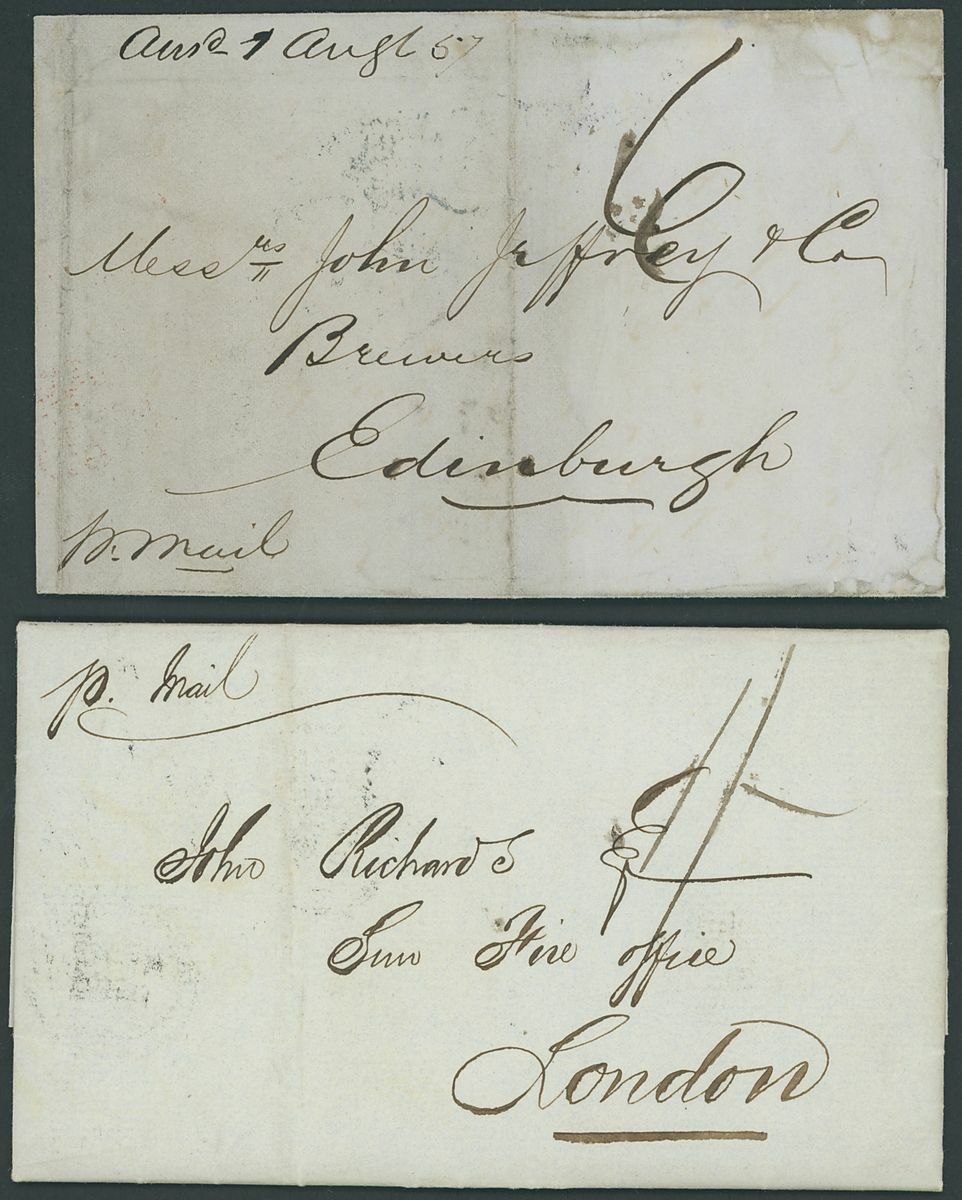 Ansd 1 Augt 57
6
Messrs John Jeffrey & Co
Brewers
Edinburgh
p. Mail
p. Mail
1/-
John Richards Esq
Sun Fire office
London